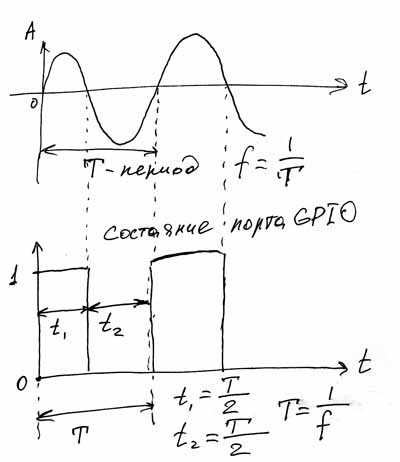 A
0
t
T-период
f = 1/T
состояние порта GPIO
1
t₁
t₂
0
t
T
t₁ = T/2
t₂ = T/2
T = 1/f